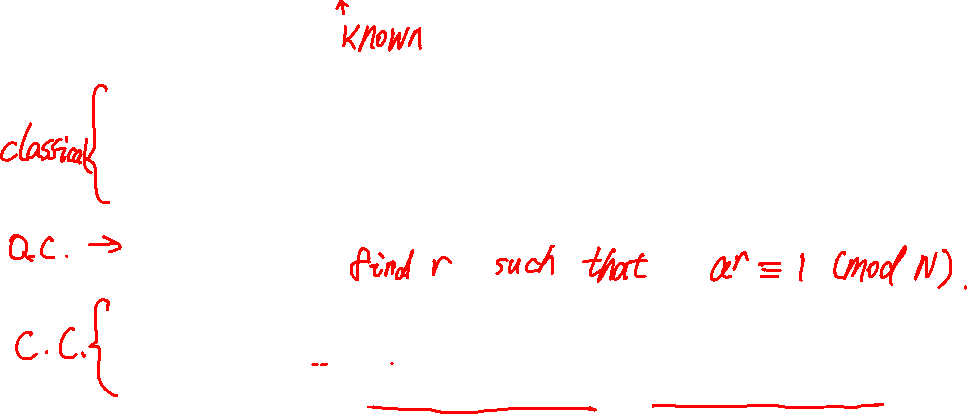 known
classical
Q.C. →
find r such that a^r ≡ 1 (mod N).
C.C.